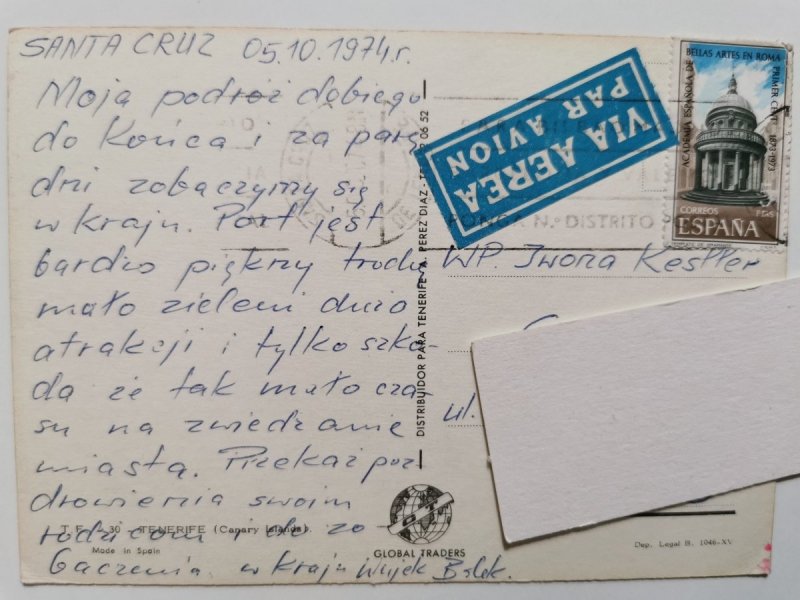 SANTA CRUZ 05.10.1974r.
Moja podróż dobiega
do końca i za parę
dni zobaczymy się
w kraju. Port jest
bardzo piękny trochę
mało zieleni dużo
atrakcji i tylko szko-
da że tak mało cza-
su na zwiedzanie
miasta. Przekaż poz-
drowienia swoim
rodzicom i do zo-
baczenia w kraju Wujek
T. F. - 30 - TENERIFE (Canary Islands)
Made in Spain
DISTRIBUIDOR PARA TENERIFE: A. PEREZ DIAZ -
GLOBAL TRADERS
VIA AEREA
PAR AVION
BELLAS ARTES EN ROMA
ACADEMIA ESPAÑOLA DE
PRIMER CENT.º 1873-1973
CORREOS
PTAS
ESPAÑA
PONGA N.º DISTRITO
WP. Iwona
ul.
Dep. Legal B. 1046-XV